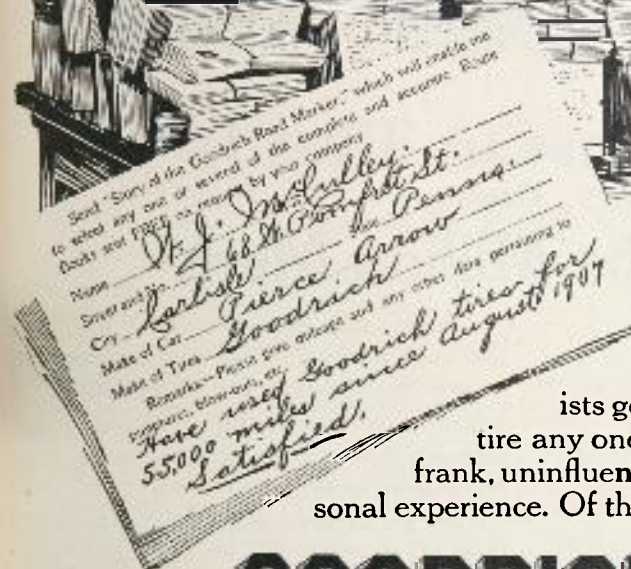 Send "Story of the Goodrich Road Marker," which will enable me
to select any one or several of the complete and accurate Route
Books sent FREE on request by your company
Name W. J. McCulley.
Street and No. 68 St. Pomfret St.
City Carlisle State Penna.
Make of Car Pierce Arrow
Make of Tires Goodrich
Remarks—Please give mileage and any other data pertaining to
punctures, blow-outs, etc.
Have used Goodrich tires for
55,000 miles since August 1907
Satisfied.
ists
tire any one
frank,
sonal experience. Of